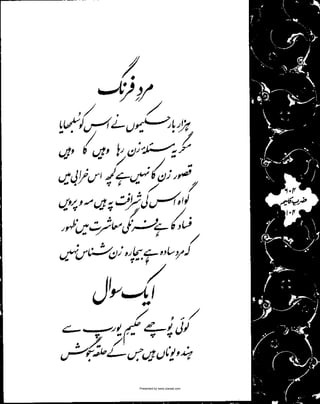 مردِ فرنگ
ہزار بار حکیموں نے اس کو سلجھایا
مگر یہ مسئلۂ زن رہا وہیں کا وہیں
قصور زن کا نہیں ہے کچھ اس خرابی میں
گواہ اس کی شرافت پہ ہیں مہ و پرویں
فساد کا ہے فرنگی معاشرت میں ظہور
کہ مرد سادہ ہے بیچارہ زن شناس نہیں
ایک سوال
کوئی پوچھے حکیمِ یورپ سے
ہند و یوناں ہیں جس کے حلقہ بگوش
۶۰۳
ضربِ کلیم
۱۰۳
Presented by www.ziaraat.com